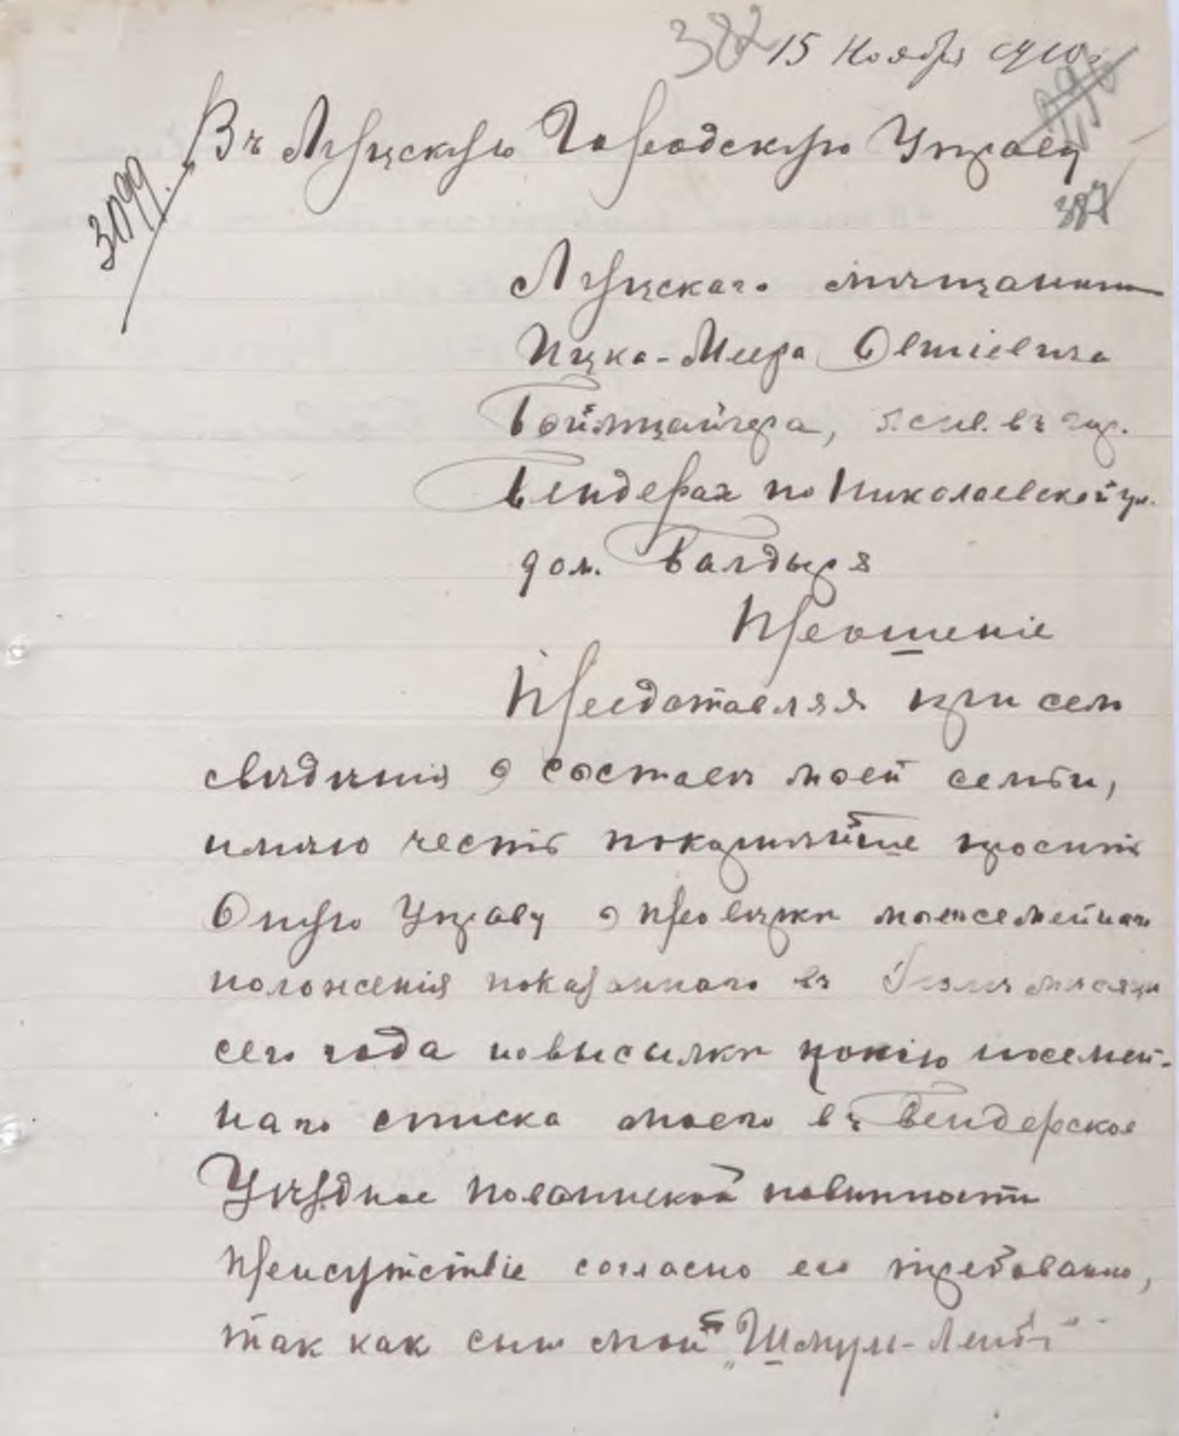 382 15 Ноября 1910 г.
Въ Луцкую Городскую Управу
3099.
387
Луцскаго мѣщанина
Ицка-Меера Овшіевича
Боймцайгера, въ гор.
Бендерах по Николаевской ул.
дом. Балдыря
Прошеніе
Предоставляя при сем
свѣдѣнія о составѣ моей семьи,
имѣю честь покорнѣйше просить
Оную Управу о провѣркѣ моего семейнаго
положенія показаннаго въ мѣсяцѣ
сего года и о высылкѣ копію посемей-
наго списка моего въ Бендерское
Уѣздное по воинской повинности
Присутствіе согласно его требованію,
так как сын мой „Шмул-Лейб"